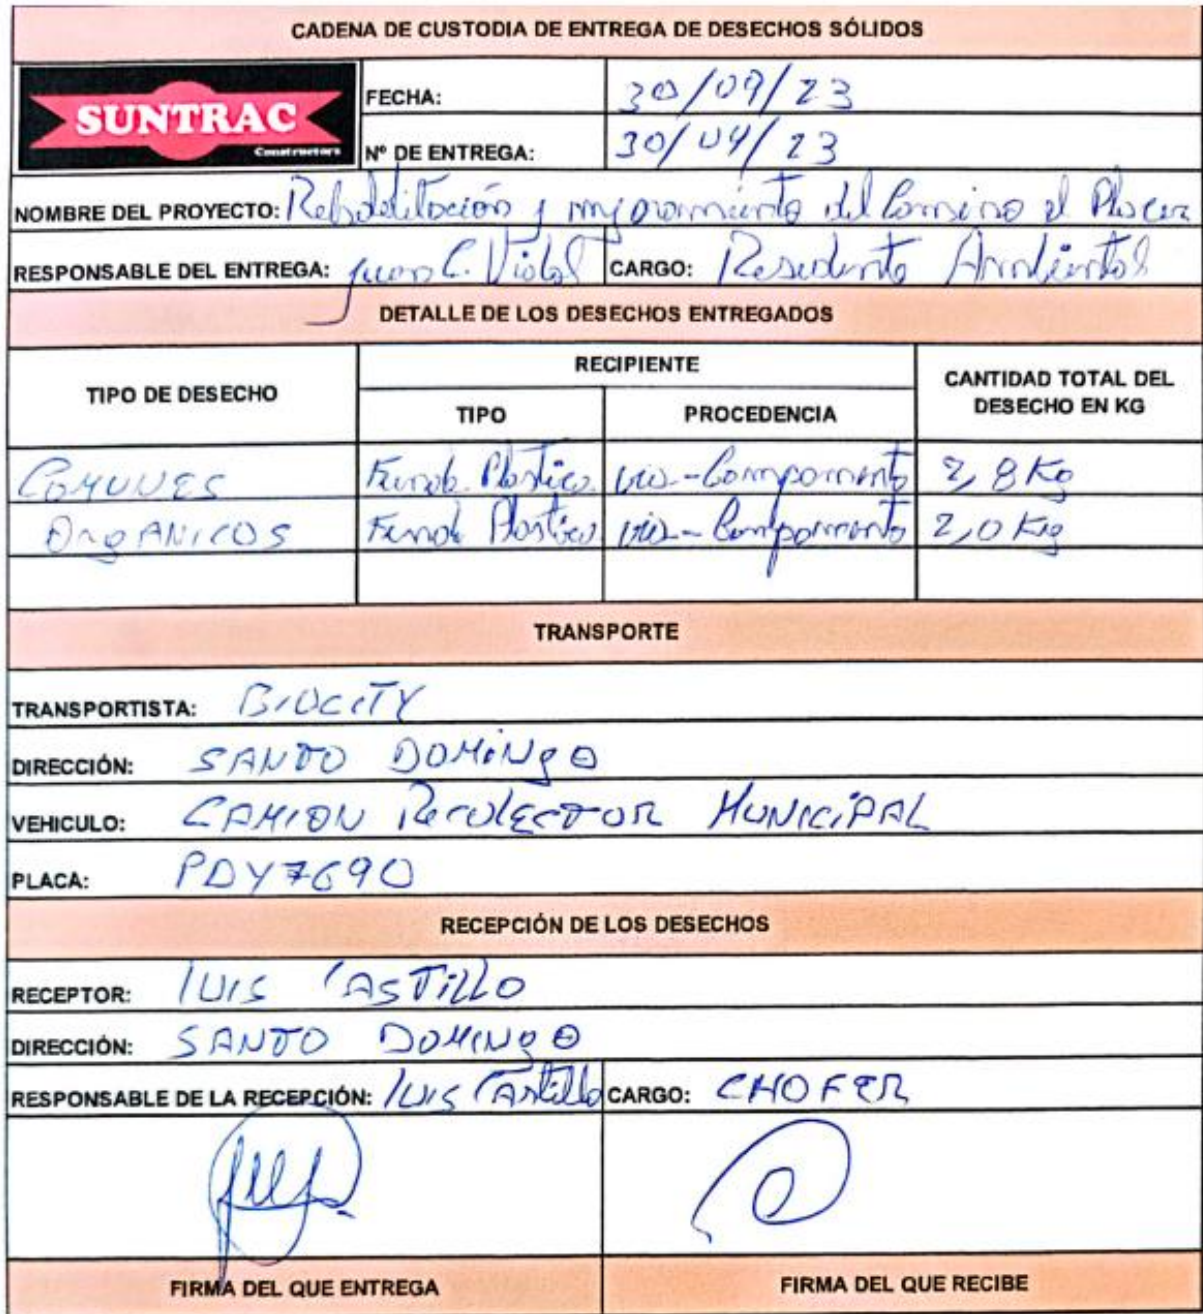 CADENA DE CUSTODIA DE ENTREGA DE DESECHOS SÓLIDOS
SUNTRAC
Constructors
FECHA: 30/09/23
Nº DE ENTREGA: 30/04/23
NOMBRE DEL PROYECTO: Rehabilitación y mejoramiento del Camino el Placer
RESPONSABLE DEL ENTREGA: Juan C. Vidal CARGO: Residente Ambiental
DETALLE DE LOS DESECHOS ENTREGADOS
TIPO DE DESECHO RECIPIENTE CANTIDAD TOTAL DEL DESECHO EN KG
TIPO PROCEDENCIA
COMUNES Funda Plastica vía-Campamento 2,8 Kg
ORGANICOS Funda Plastica vía-Campamento 2,0 Kg
TRANSPORTE
TRANSPORTISTA: BIOCITY
DIRECCIÓN: SANTO DOMINGO
VEHICULO: CAMION RECOLECTOR MUNICIPAL
PLACA: PDY7690
RECEPCIÓN DE LOS DESECHOS
RECEPTOR: LUIS CASTILLO
DIRECCIÓN: SANTO DOMINGO
RESPONSABLE DE LA RECEPCIÓN: LUIS Castillo CARGO: CHOFER
FIRMA DEL QUE ENTREGA FIRMA DEL QUE RECIBE